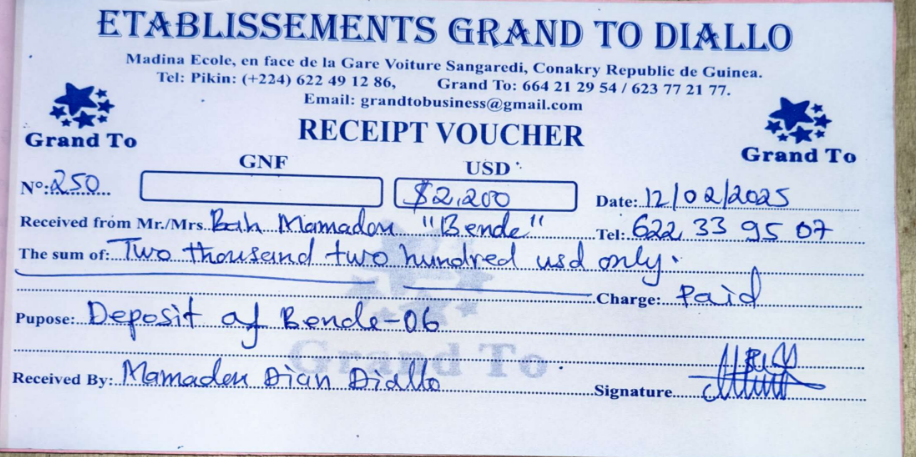 ETABLISSEMENTS GRAND TO DIALLO
Madina Ecole, en face de la Gare Voiture Sangaredi, Conakry Republic de Guinea.
Tel: Pikin: (+224) 622 49 12 86, Grand To: 664 21 29 54 / 623 77 21 77.
Email: grandtobusiness@gmail.com
Grand To
RECEIPT VOUCHER
Grand To
GNF USD
Nº: 250 $2,200 Date: 12/02/2025
Received from Mr./Mrs. Bah Mamadou "Bende" Tel: 622 33 95 07
The sum of: Two thousand two hundred usd only.
Charge: Paid
Pupose: Deposit of Bende-06
Grand To
Received By: Mamadou Dian Diallo Signature